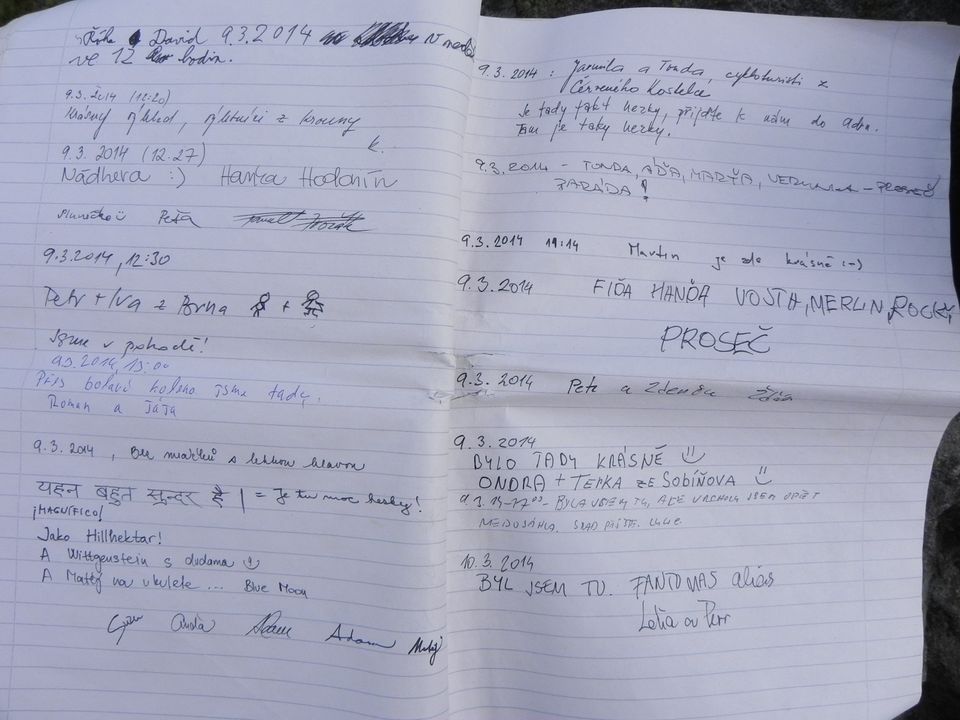 David 9.3.2014
ve 12 hodin.
9.3.2014 (12:20)
krásný výhled, výletníci z Krouny
K.
9.3.2014 (12.27)
Nádhera :) Hanka Hodonín
sluníčko Peťa
9.3.2014, 12:30
Petr + Iva z Brna +
Jsme v pohodě!
9.3.2014, 13:00
Přes bolavé koleno jsme tady.
Roman a Jája
9.3.2014, Bez mináků s lehkou hlavou
यहन बहुत सुन्दर है | = Je tu moc hezky!
¡MAGNÍFICO!
Jako Hillhektar!
A Wittgenstein s dudama
A Matěj na ukulele ... Blue Moon
Adam Matěj
9.3.2014: Jarmila a Tonda, cykloturisti z
Červeného Kostelce
Je tady také hezky, přijďte k nám do Adru.
Tam je taky hezky.
9.3.2014 - TONDA, AĎA, MARŤA, VERUNKA - PROSEČ
PARÁDA!
9.3.2014 14:14 Martin je zde krásně :-)
9.3.2014 FIĎA HANĎA VOJTA, MERLIN, ROCKY
PROSEČ
9.3.2014 Petr a Zdenka
9.3.2014
BYLO TADY KRÁSNĚ
ONDRA + TERKA ZE SOBÍŇOVA
BYLA JSEM TU, ALE VRCHOLU JSEM OPĚT
NEDOSÁHLA. SNAD PŘÍŠTĚ.
10.3.2014
BYL JSEM TU. FANTOMAS alias